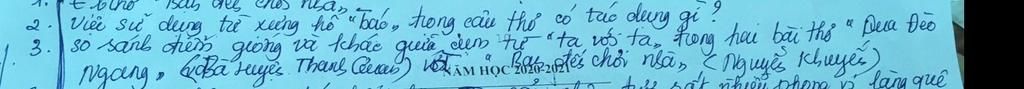 Bạn đến chơi nhà„
2. Việc sử dụng từ xưng hô "bác„ trong câu thơ có tác dụng gì?
3. so sánh điểm giống và khác giữa cụm từ "ta với ta„ trong hai bài thơ "Qua Đèo
Ngang„ (Bà Huyện Thanh Quan) với "Bạn đến chơi nhà„ (Nguyễn Khuyến)
NĂM HỌC 2020-2021
rất nhiều phong vị làng quê